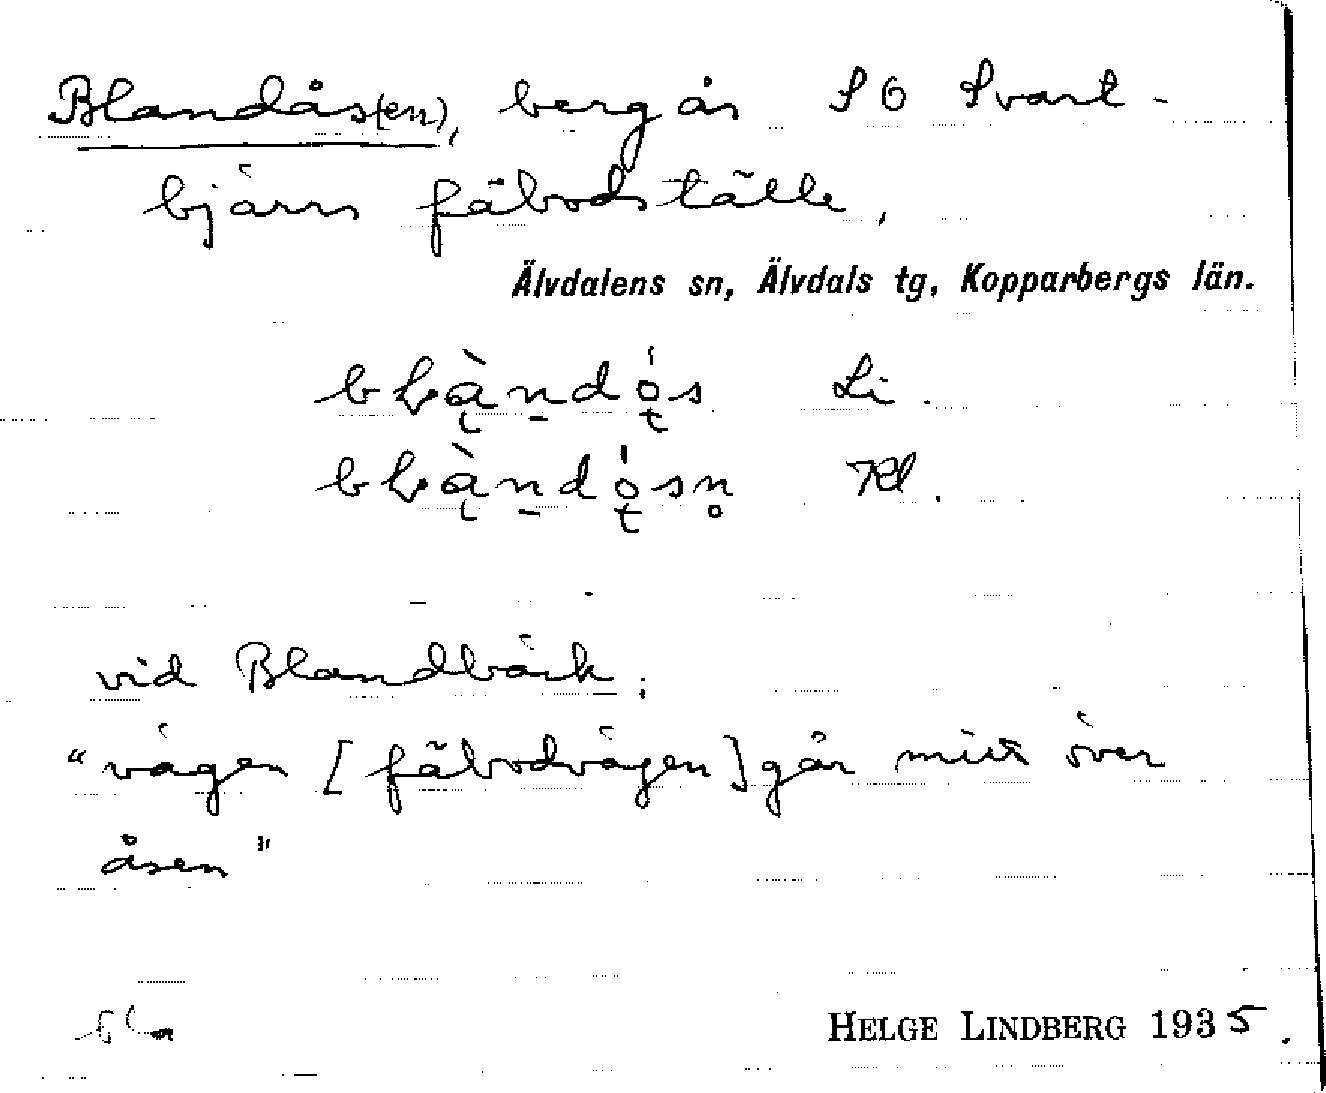 Blandås(en), bergås SO Svart-
bjärns fäbodställe,
Älvdalens sn, Älvdals tg, Kopparbergs län.
Li.
Kl.
vid Blandbäck.
"vägen [fäbodvägen] går mitt över
åsen"
HELGE LINDBERG 1935.